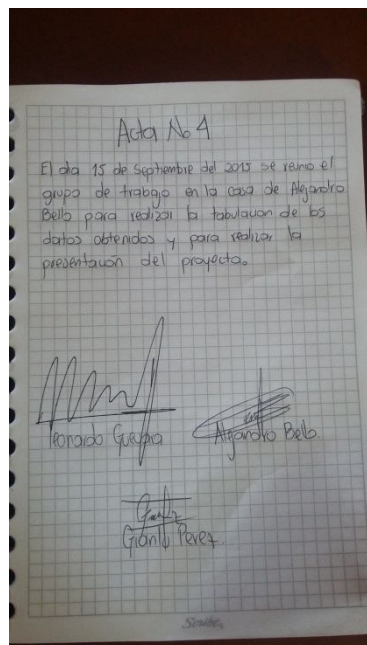 Acta No 4
El dia 15 de Septiembre del 2015 se reunio el
grupo de trabajo en la casa de Alejandro
Bello para realizar la tabulacion de los
datos obtenidos y para realizar la
presentacion del proyecto.
Leonardo Guevara
Alejandro Bello.
Perez
Scribe